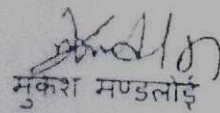 मुकेश मण्डलोई